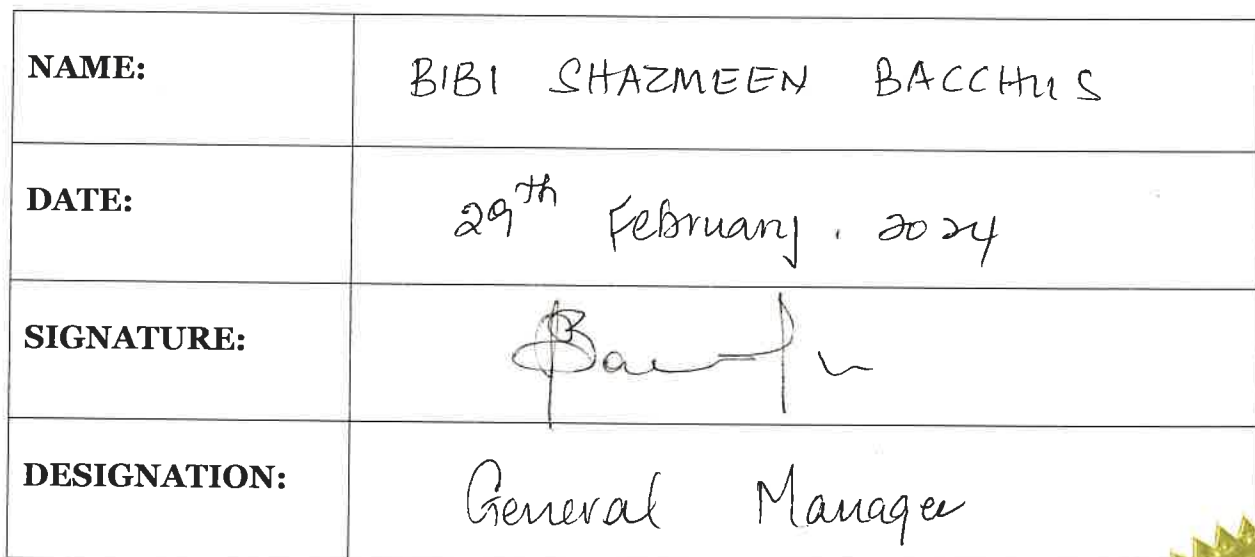 NAME: BIBI SHAZMEEN BACCHUS
DATE: 29th February. 2024
SIGNATURE:
DESIGNATION: General Manager